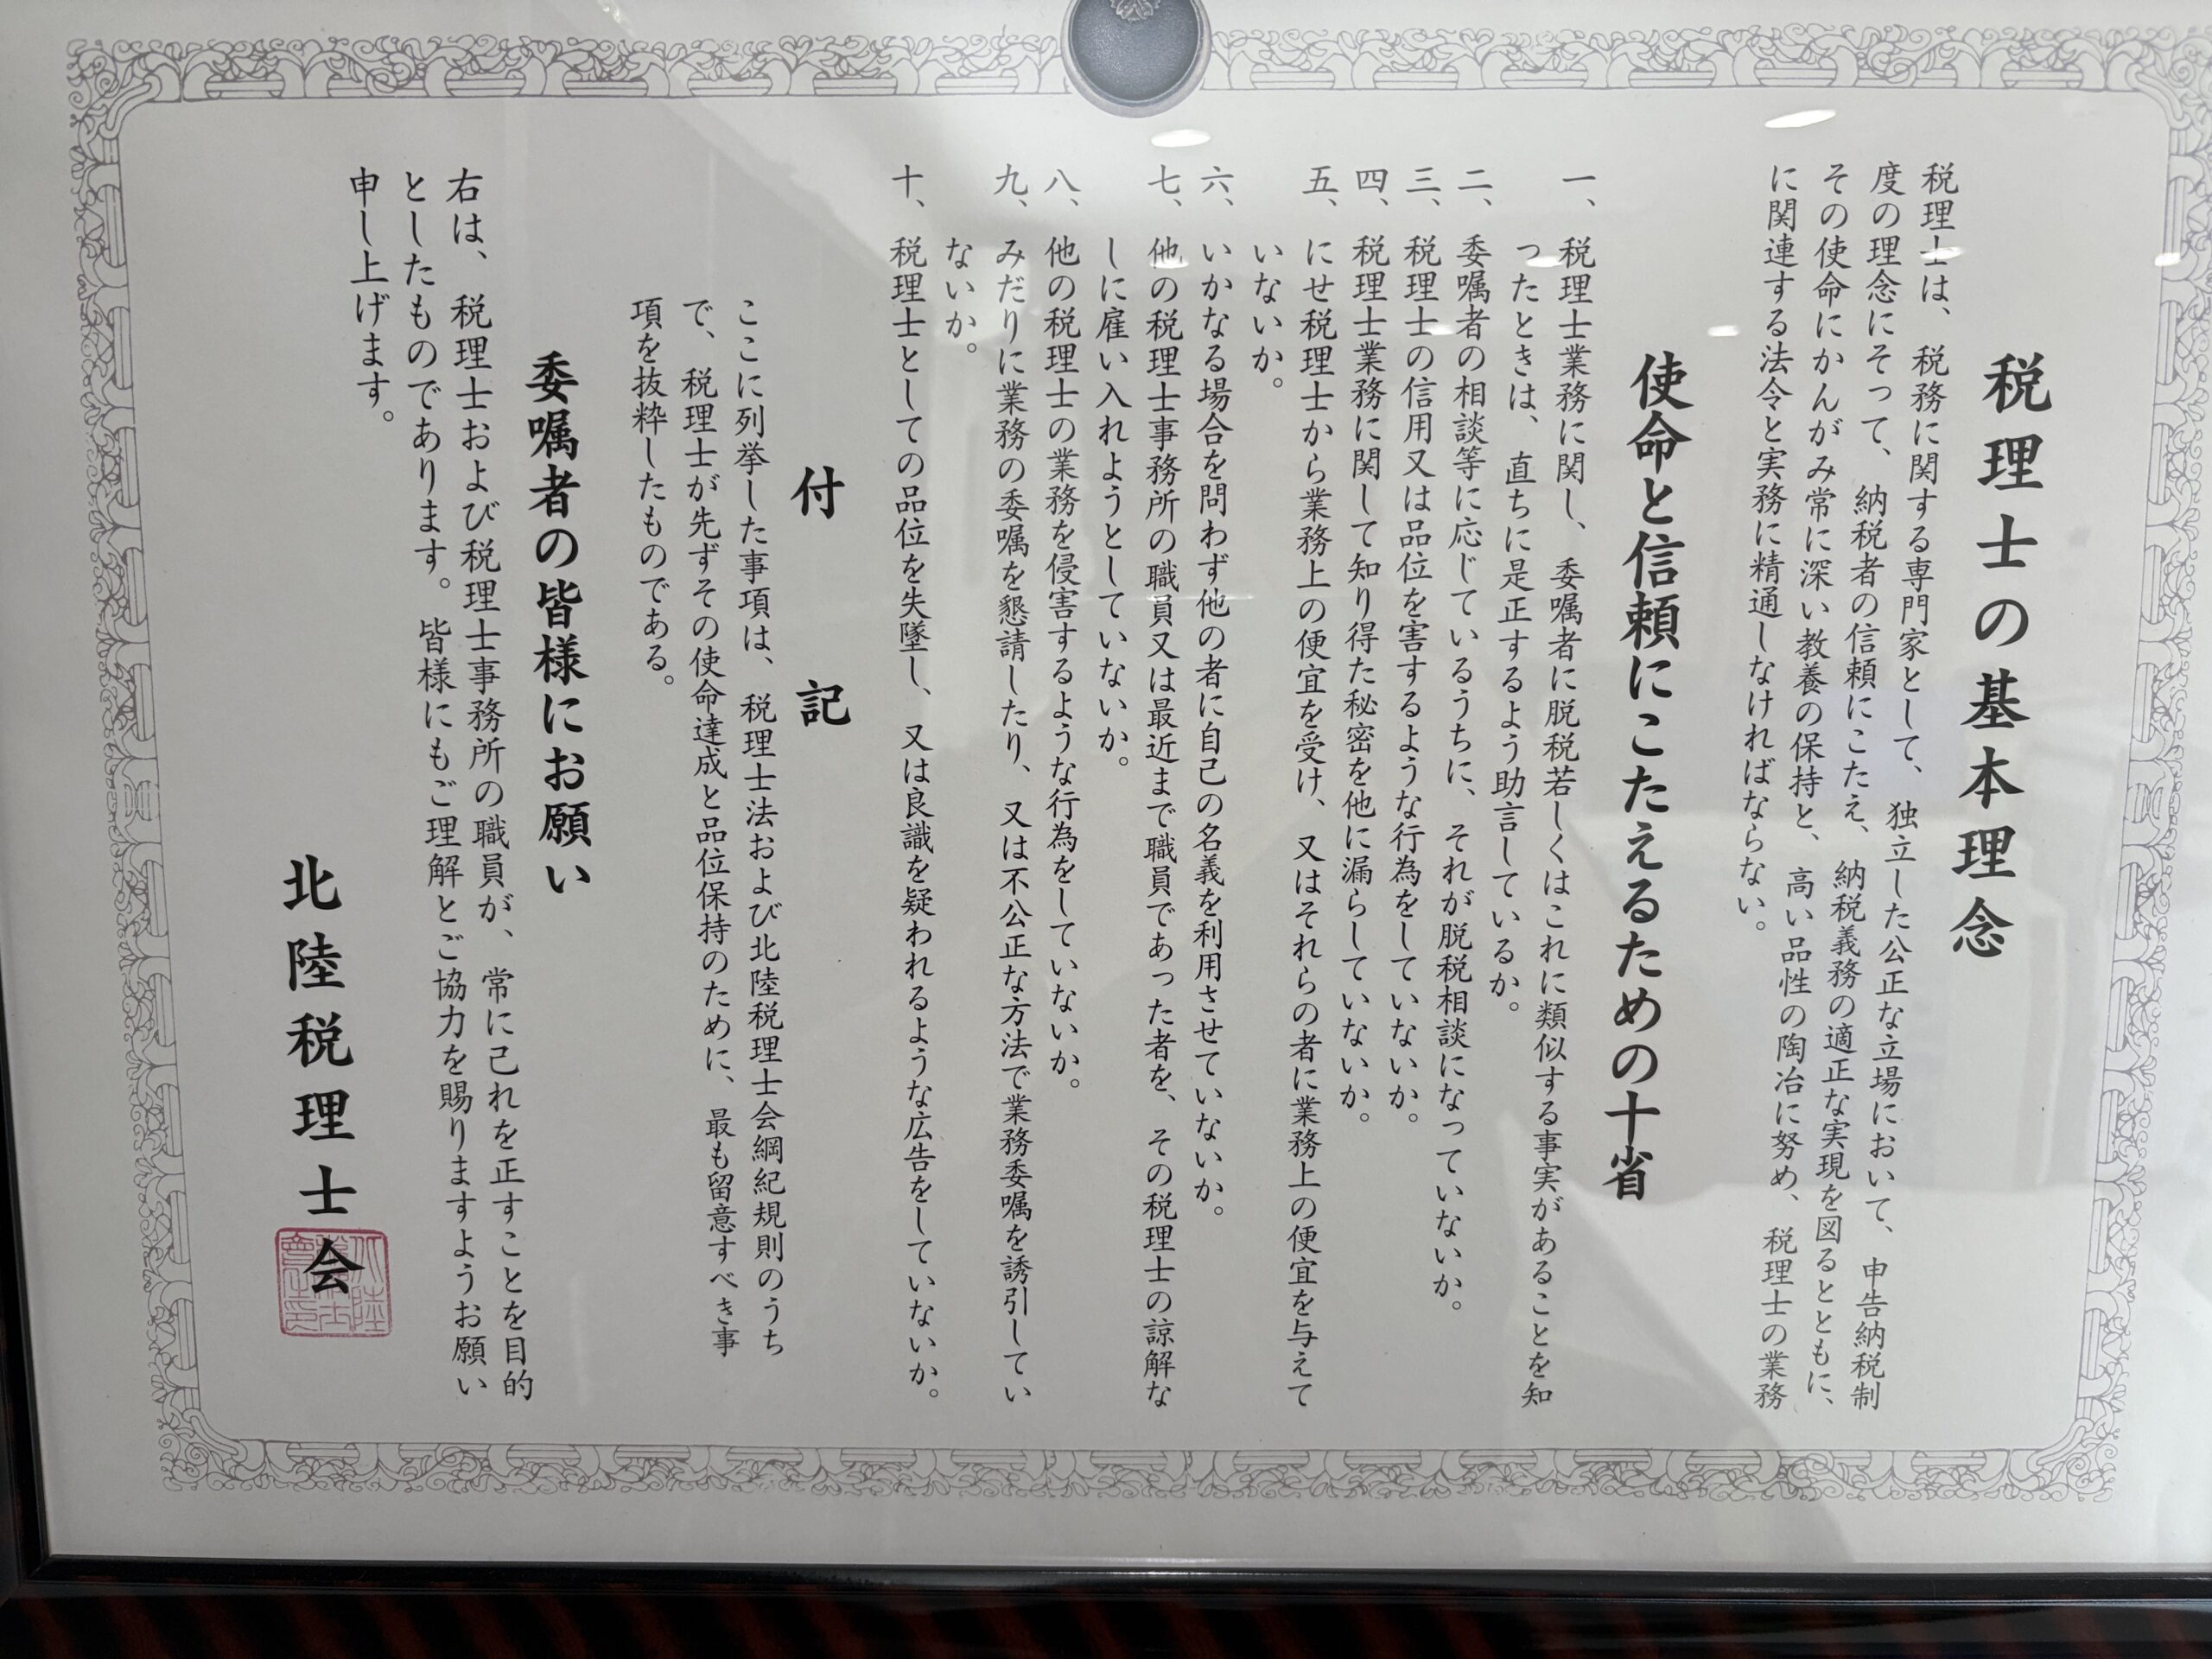 税理士の基本理念
税理士は、税務に関する専門家として、独立した公正な立場において、申告納税制
度の理念にそって、納税者の信頼にこたえ、納税義務の適正な実現を図るとともに、
その使命にかんがみ常に深い教養の保持と、高い品性の陶冶に努め、税理士の業務
に関連する法令と実務に精通しなければならない。
使命と信頼にこたえるための十省
一、税理士業務に関し、委嘱者に脱税若しくはこれに類似する事実があることを知
ったときは、直ちに是正するよう助言しているか。
二、委嘱者の相談等に応じているうちに、それが脱税相談になっていないか。
三、税理士の信用又は品位を害するような行為をしていないか。
四、税理士業務に関して知り得た秘密を他に漏らしていないか。
五、にせ税理士から業務上の便宜を受け、又はそれらの者に業務上の便宜を与えて
いないか。
六、いかなる場合を問わず他の者に自己の名義を利用させていないか。
七、他の税理士事務所の職員又は最近まで職員であった者を、その税理士の諒解な
しに雇い入れようとしていないか。
八、他の税理士の業務を侵害するような行為をしていないか。
九、みだりに業務の委嘱を懇請したり、又は不公正な方法で業務委嘱を誘引してい
ないか。
十、税理士としての品位を失墜し、又は良識を疑われるような広告をしていないか。
付記
ここに列挙した事項は、税理士法および北陸税理士会綱紀規則のうち
で、税理士が先ずその使命達成と品位保持のために、最も留意すべき事
項を抜粋したものである。
委嘱者の皆様にお願い
右は、税理士および税理士事務所の職員が、常に己れを正すことを目的
としたものであります。皆様にもご理解とご協力を賜りますようお願い
申し上げます。
北陸税理士会